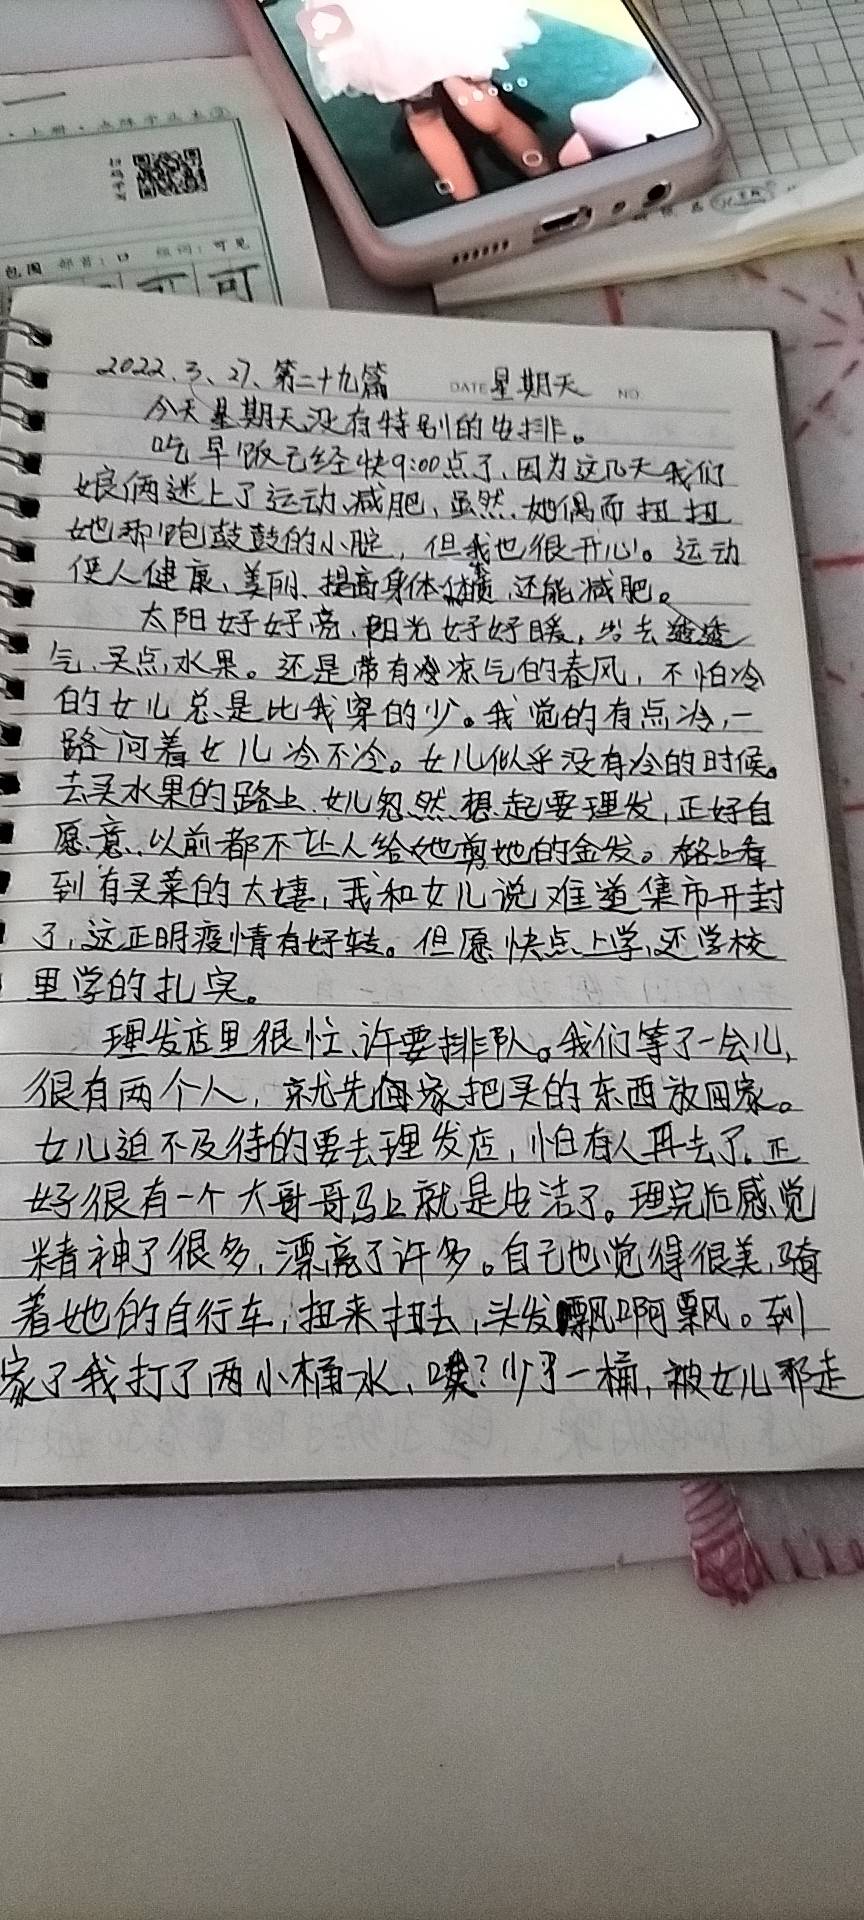 扫码学写
包围 部首：口 组词：可见
可 可
2022.3、27、第二十九篇 DATE 星期天 NO.
今天星期天、没有特别的安排。
吃早饭已经快9:00点了，因为这几天我们
娘俩迷上了运动、减肥、虽然、她偶而扭扭
她那胞鼓鼓的小腚，但我也很开心。运动
使人健康、美丽、提高身体体质，还能减肥。
太阳好好亮、阳光好好暖，出去透透
气、买点水果。还是带有凉气的春风，不怕冷
的女儿总是比我穿的少。我觉的有点冷，一
路问着女儿冷不冷。女儿似乎没有冷的时候。
去买水果的路上、女儿忽然想起要理发，正好自
愿意、以前都不让人给她剪她的金发。路上看
到有买菜的大婶，我和女儿说难道集市开封
了，这正明疫情有好转。但愿快点上学，还学校
里学的扎实。
理发店里很忙、许要排队。我们等了一会儿，
很有两个人，就先回家把买的东西放回家。
女儿迫不及待的要去理发店，怕有人再去了。正
好很有一个大哥哥马上就是 洁了。理完后感觉
精神了很多，漂亮了许多。自己也觉得很美，骑
着她的自行车，扭来扭去，头发飘啊飘。到
家了我打了两小桶水，咦？少了一桶，被女儿那走